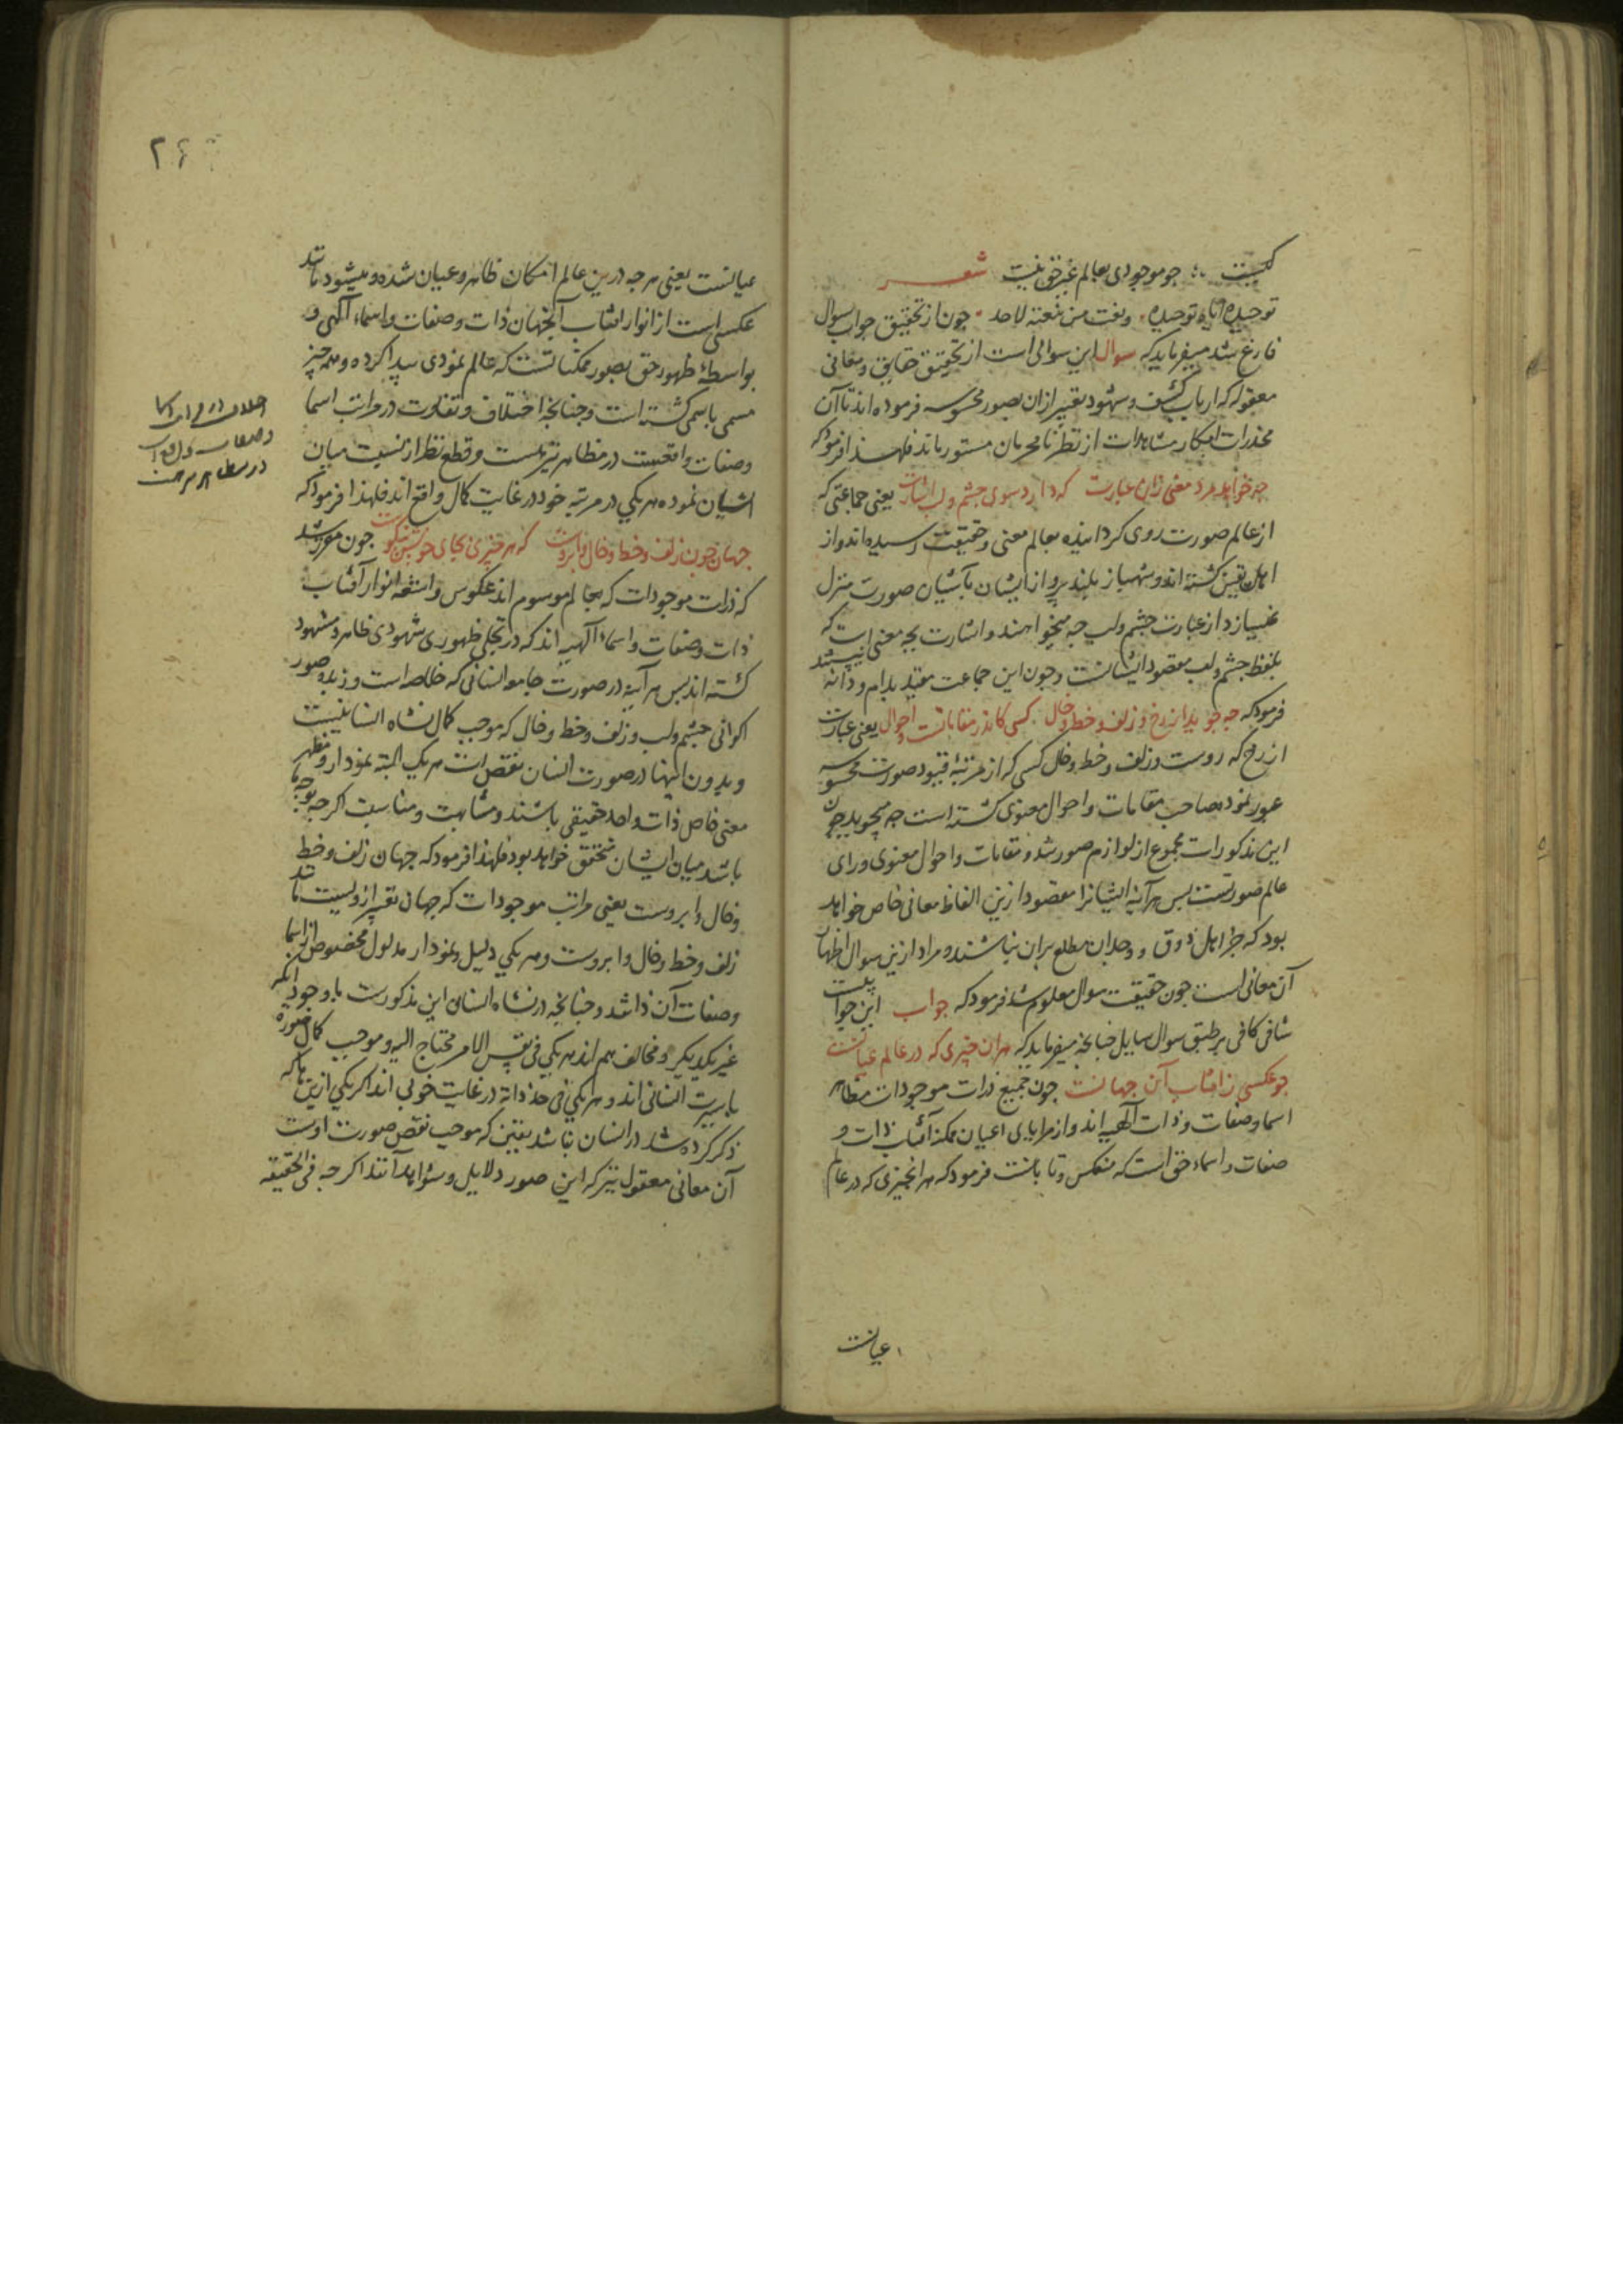 کیست جو موجودی بعالم غیر حق نیست شعر
توحیده ایاه توحیده ونعت من ینعته لاحد جون از تحقیق جواب سوال
فارغ شد میفرماید که سوال این سوالی است از تحقیق حقایق و معانی
معقوله که ارباب کشف و شهود تعبیر ازان بصور محسوسه فرموده اند تا آن
مخدرات ابکار مشاهدات از نظر نامحرمان مستور ماند فلهذا فرمود که
جه خواهد مرد معنی زان عبارت که دارد سوی جشم و لب اشارت یعنی جماعتی که
از عالم صورت روی کردانیده بعالم معنی و حقیقت رسیده اند و از
اهل یقین کشته اند و شهباز بلند پرواز ایشان بآشیان صورت منزل
نمیسازد از عبارت جشم و لب جه میخواهند و اشارت بجه معنی است که
بلفظ جشم و لب مقصود ایشانست و جون این جماعت مقید بدام و دانه نیستند
فرمود که جه جوید از رخ و زلف و خط و خال کسی کاندر مقاماتست و احوال یعنی عبارت
از رخ که روست و زلف و خط و خال کسی که از مرتبه قیود صورت محسوسه
عبور نموده صاحب مقامات و احوال معنوی کشته است جه میجوید جون
این مذکورات مجموع از لوازم صور شد و مقامات و احوال معنوی ورای
عالم صورتست بس هر آینه ایشانرا مقصود ازین الفاظ معانی خاص خواهد
بود که جز اهل ذوق و وجدان مطلع بران نباشند و مراد ازین سوال اظهار
آن معانی است جون حقیقت سوال معلوم شد فرمود که جواب این جوابیست
شافی کافی بر طبق سوال سایل جنانجه میفرماید که هران جیزی که در عالم عیانست
جو عکسی ز افتاب آن جهانست جون جمیع ذرات موجودات مظاهر
اسما و صفات و ذات آلهیه اند و از مرایای اعیان ممکنه آفتاب ذات و
صفات و اسماء حق است که منعکس و تابانست فرمود که هر انجیزی که در عالم
عیانست
۲۶
عیانست یعنی هر جه درین عالم امکان ظاهر و عیان شده و میشود مانند
عکسی است از انوار افتاب آنجهان ذات و صفات و اسماء آلهی و
بواسطه ظهور حق بصور ممکناتست که عالم نمودی پیدا کرده و همه جیز
مسمی باسمی کشته است و جنانجه اختلاف و تفاوت در مراتب اسما
و صفات واقعست در مظاهر نیز هست و قطع نظر از نسبت میان
اشیان نموده هر یکی در مرتبه خود در غایت کمال واقع اند فلهذا فرمود که
جهان جون زلف و خط و خال و ابروست که هر جیزی بجای خویش نیکوست جون مقرر شد
که ذرات موجودات که بعالم موسوم اند عکوس و اشعه انوار آفتاب
ذات و صفات و اسماء آلهیه اند که در تجلی ظهوری شهودی ظاهر و مشهود
کشته اند بس هر آینه در صورت جامعه انسانی که خلاصه است و زبده صور
اکوانی جشم و لب و زلف و خط و خال که موجب کمال نشاه انسانیست
و بدون اینها در صورت انسان نقص است هر یک البته نمودار و مظهر
معنی خاص ذات واحد حقیقی باشند و مشابهت و مناسبت اکر جه بوجه ما
باشد میان ایشان متحقق خواهد بود فلهذا فرمود که جهان زلف و خط
و خال و ابروست یعنی مراتب موجودات که جهان تعبیر ازوست مانند
زلف و خط و خال و ابروست و هر یکی دلیل و نمودار مدلول مخصوص از اسما
و صفات آن ذاتند و جنانجه در نشاه انسان این مذکورت باوجود انکه
غیر یکدیکر و مخالف هم اند هر یکی فی نفس الامر محتاج الیه و موجب کمال صورة
انسانی اند و هر یکی فی حد ذاته در غایت خوبی اند اکر یکی ازینها که
ذکر کرده شد در انسان نباشد یقین که موجب نقص صورت اوست
آن معانی معقول نیز که این صور دلایل و شواهد آنند اکر جه فی الحقیقه